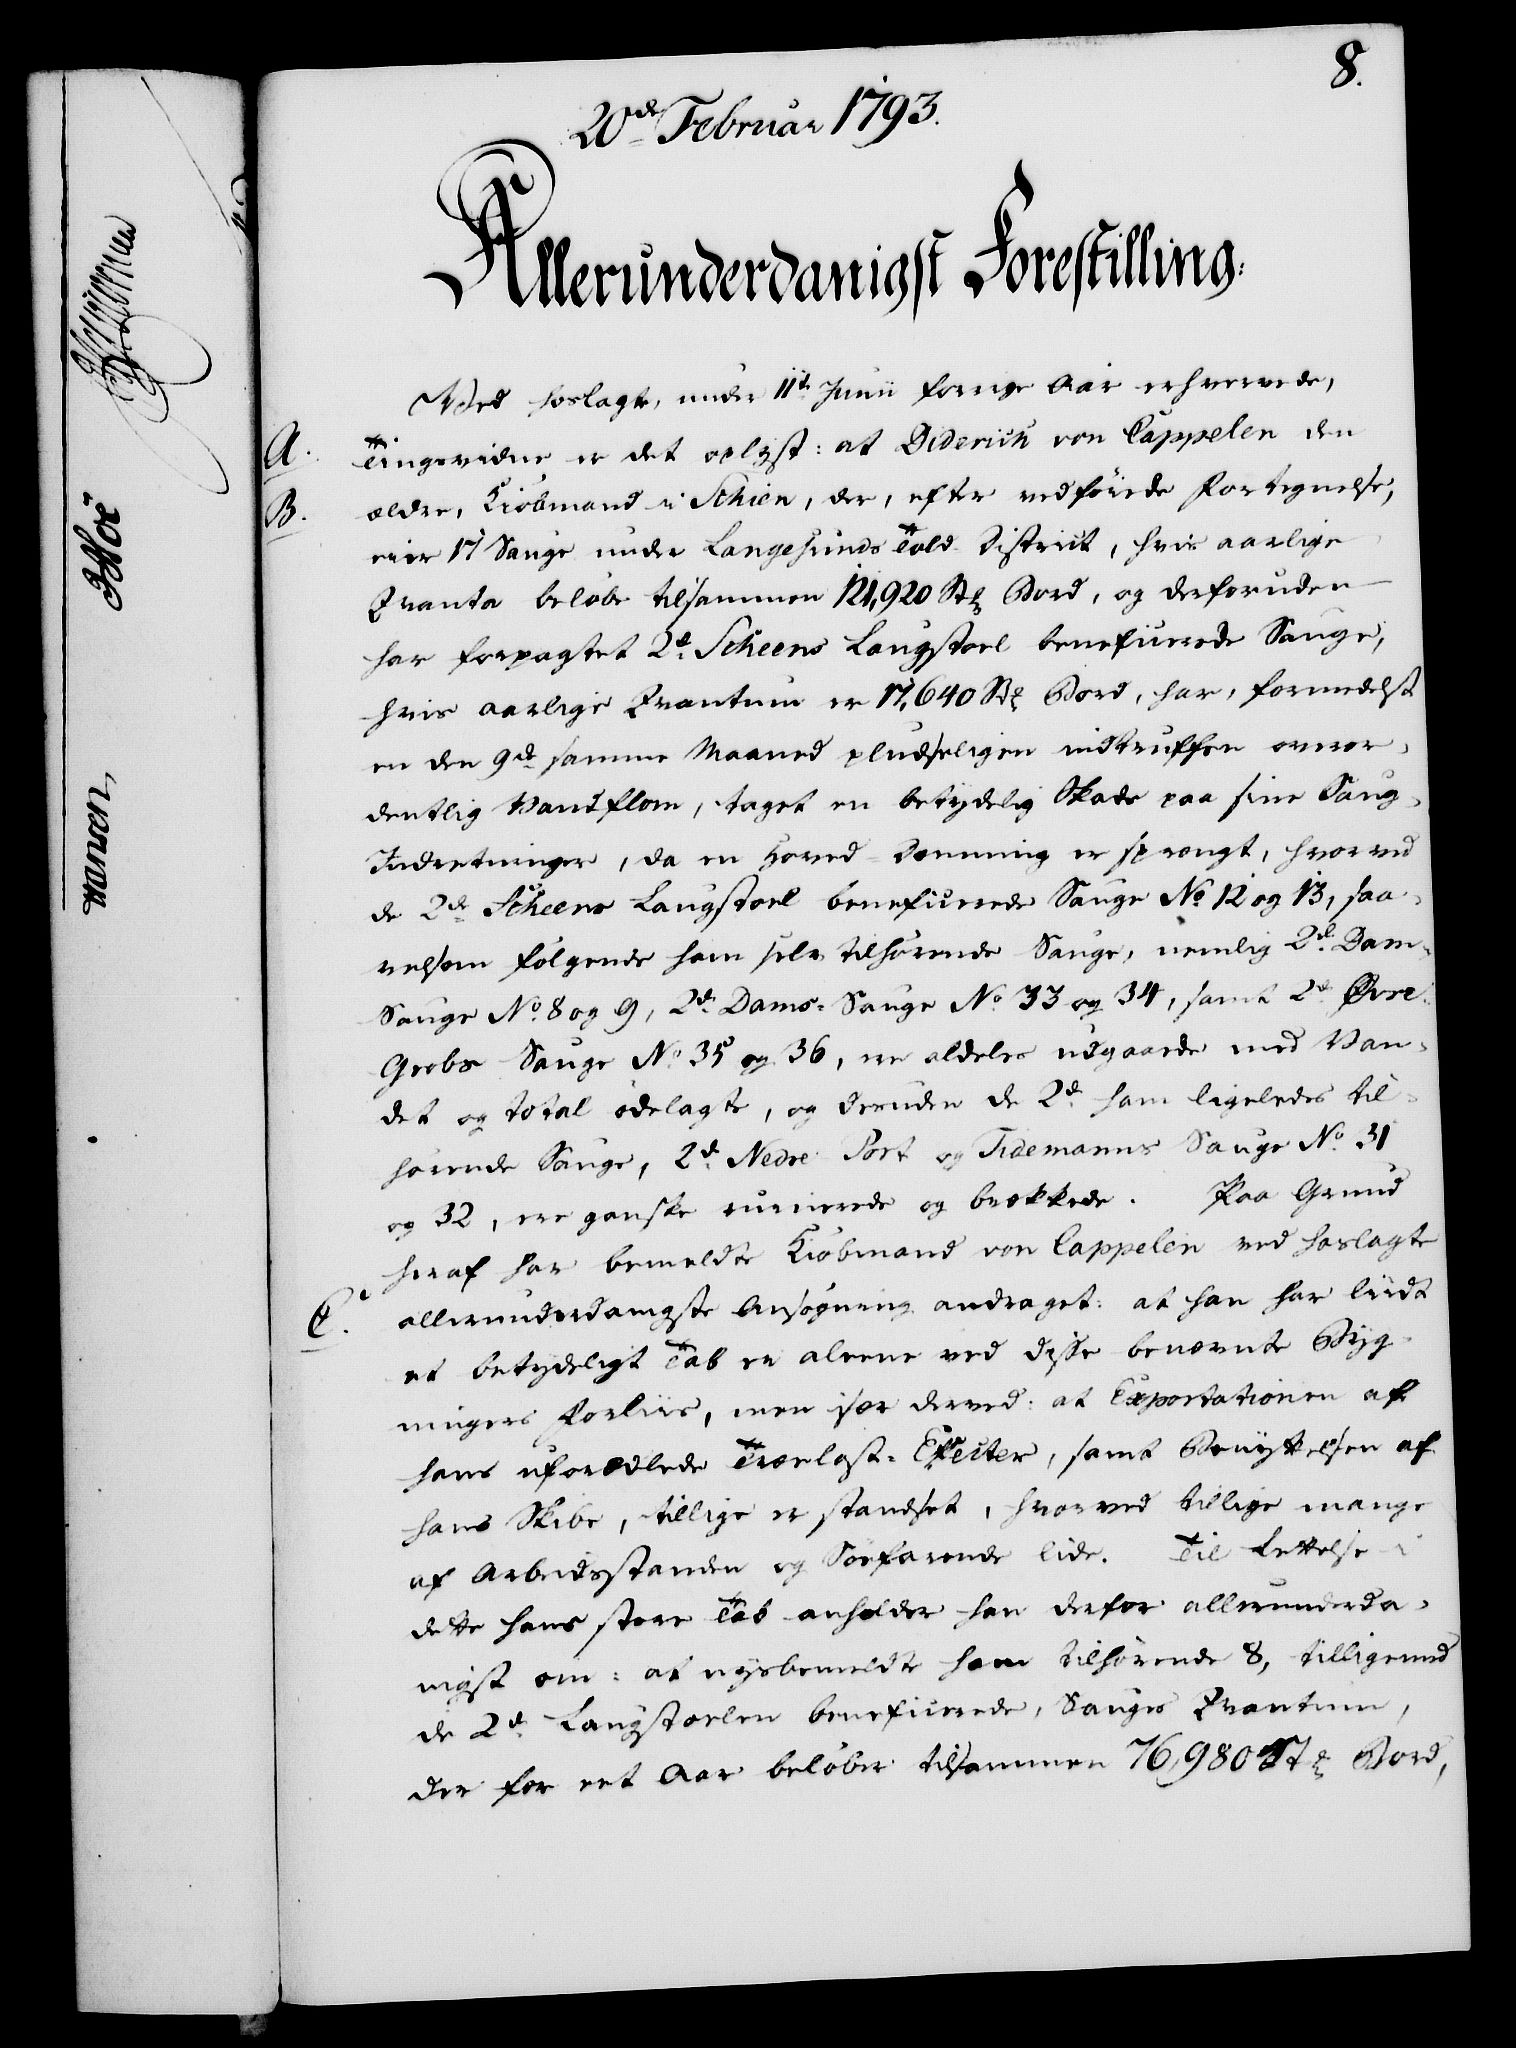 8.
20de Februar 1793.
Allerunderdanigst Forestilling:
Ved hoslagte, under 11te Junii forrige Aar erhvervede,
A. Tingsvidne er det oplyst: at Diderich von Cappelen den
B. ældre, Kiöbmand i Schien, der, efter vedföiede Fortegnelse,
eier 17 Sauge under Langesunds Told District, hvis aarlige
Qvanta belöbe tilsammen 121,920 Stk Bord, og desforuden
har forpagtet 2de Scheens Laugstoel beneficerede Sauge,
hvis aarlige Qvantum er 17,640 Stk Bord, har, formedelst
en den 9de samme Maaned pludseligen indtruffen overor-
dentlig Vandflom, taget en betydelig Skade paa sine Saug-
Indretninger, da en Hoved-Dæmning er sprængt, hvorved
de 2de Scheens Laugstoel beneficerede Sauge No 12 og 13, saa-
velsom fölgende ham selv tilhörende Sauge, nemlig 2de Dam-
Sauge No 8 og 9, 2de Dams-Sauge No 33 og 34, samt 2de Övre-
Grobs Sauge No 35 og 36, ere aldeles udgaaede med Van-
det og total ödelagte, og desuden de 2de ham ligeledes til-
hörende Sauge, 2de Nedre Port og Tidemanns Sauge No 31
og 32, ere ganske ruinerede og brækkede. Paa Grund
heraf har bemeldte Kiöbmand von Cappelen ved hoslagte
C. allerunderdanigste Ansögning andraget: at han har liidt
et betydeligt Tab ei aleene ved disse benævnte Byg-
ningers Forliis, men især derved: at Exportationen af
hans uforædlede Trælast-Effecter, samt Benyttelsen af
hans Skibe, tillige er standset, hvorved tillige mange
af Arbeidsstanden og Söefarende lide. Til Lettelse i
dette hans store Tab anholder han derfor allerunderda-
nigst om: at nysbemeldte ham tilhörende 8, tilligemed
de 2de Laugstoelen beneficerede, Sauges Qvantum,
der for eet Aar belöber tilsammen 76,980 Stk Bord,